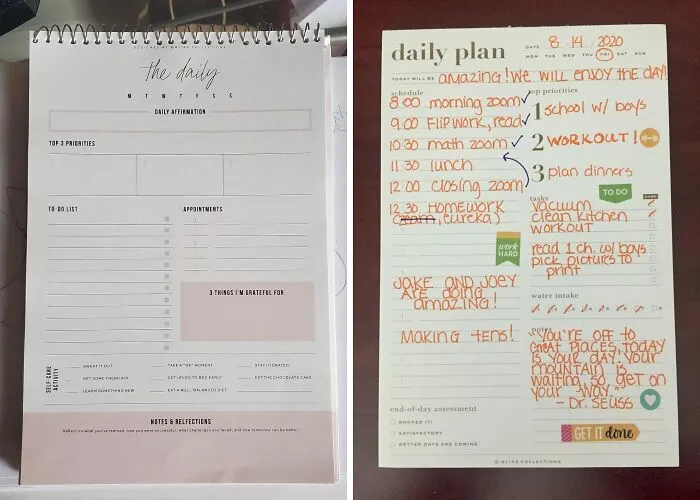 DESIGNED BY BLISS COLLECTIONS
the daily
M T W T F S S
DAILY AFFIRMATION
TOP 3 PRIORITIES
1 2 3
TO-DO LIST
APPOINTMENTS
3 THINGS I'M GRATEFUL FOR
SELF-CARE
ACTIVITY
SWEAT IT OUT
TAKE A "ME" MOMENT
STAY HYDRATED
GET SOME FRESH AIR
GET UP/GO TO BED EARLY
EAT THE CHOCOLATE CAKE
LEARN SOMETHING NEW
EAT A WELL BALANCED DIET
NOTES & REFLECTIONS
Reflect on what you've learned, how you were successful, what challenges you faced, and how tomorrow can be better.
daily plan
DATE 8 14 2020
MON TUE WED THU FRI SAT SUN
TODAY WILL BE amazing! WE WILL ENJOY THE DAY!
schedule
8:00 morning zoom
9:00 FLIP WORK, read
10:30 math zoom
11:30 lunch
12:00 closing zoom
12:30 HOMEWORK
(zearn, eureka)
work
HARD
JAKE AND JOEY
ARE DOING
amazing!
MAKING TENS!
end-of-day assessment
ROCKED IT!
SATISFACTORY
BETTER DAYS ARE COMING
top priorities
1 school w/ boys
2 WORKOUT!
3 plan dinners
TO DO
tasks
DONE
vacuum
clean kitchen
workout
read 1 ch. w/ boys
pick pictures to
print
water intake
notes
"YOU'RE OFF TO
GREAT PLACES, TODAY
IS YOUR DAY! YOUR
MOUNTAIN IS
waiting, SO get on
your WAY."
- Dr. SEUSS
GET IT done
© BLISS COLLECTIONS